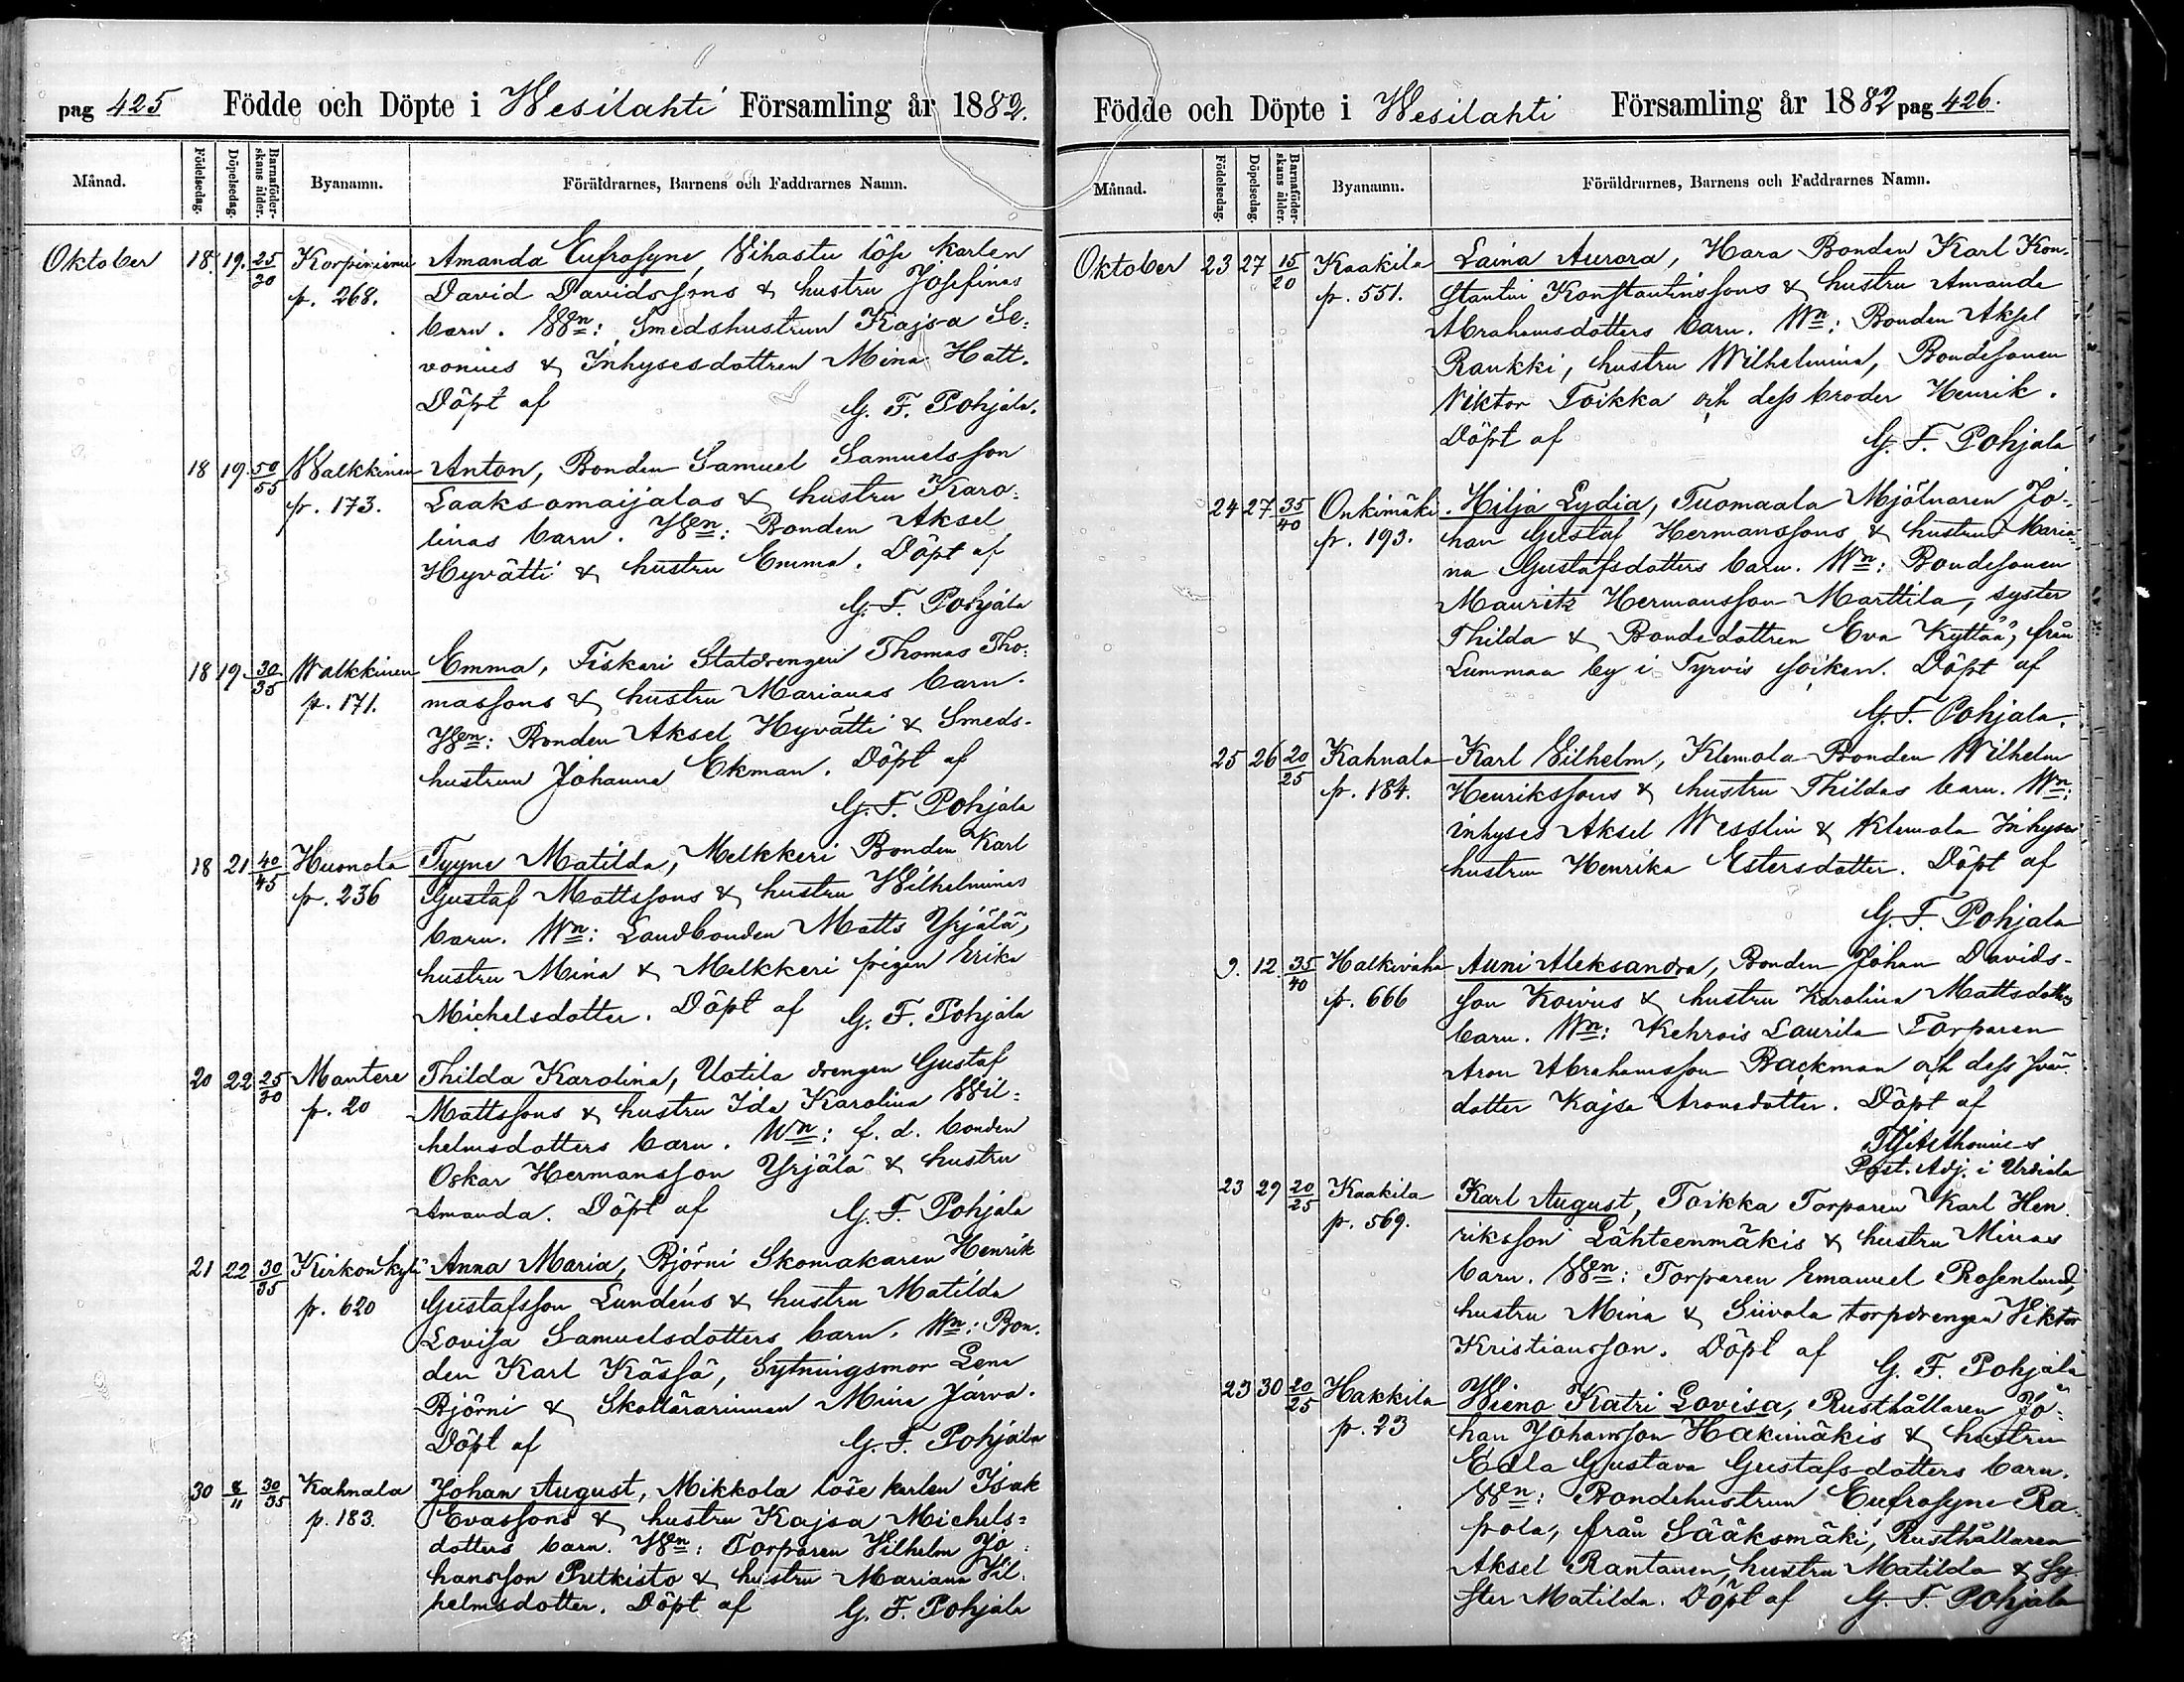 pag 425 Födde och Döpte i Wesilahti Församling år 1882.
Månad.
Födelsedag.
Döpelsedag.
Barnaföder-
skans ålder.
Byanamn.
Föräldrarnes, Barnens och Faddrarnes Namn.
Oktober 18. 19. 25/30 Korpiniemi Amanda Eufrosyne, Vihastu löse karlen
p. 268. David Davidssons & hustru Josefinas
barn. Wn: Smedshustrun Kajsa Se-
vonius & Inhysesdottren Mina Hatt.
Döpt af G. F. Pohjala.
18 19. 50/55 Walkkinen Anton, Bonden Samuel Samuelsson
p. 173. Laaksomaijalas & hustru Karo-
linas barn. Wn: Bonden Aksel
Hyvätti & hustru Emma. Döpt af
G. F. Pohjala
18 19 30/35 Walkkinen Emma, Fiskari Statdrengen Thomas Tho-
p. 171. massons & hustru Marianas barn.
Wn: Bonden Aksel Hyvätti & Smeds-
hustrun Johanna Ekman. Döpt af
G. F. Pohjala
18 21 40/45 Huonola Tyyne Matilda, Melkkeri Bonden Karl
p. 236 Gustaf Mattssons & hustru Wilhelminas
barn. Wn: Landbonden Matts Yrjälä,
hustru Mina & Melkkeri pigan Erika
Michelsdotter. Döpt af G. F. Pohjala
20 22 25/30 Mantere Thilda Karolina, Uotila drengen Gustaf
p. 20 Mattssons & hustru Ida Karolina Wil-
helmsdotters barn. Wn: f. d. bonden
Oskar Hermansson Yrjälä & hustru
Amanda. Döpt af G. F. Pohjala
21 22 30/35 Kirkonkylä Anna Maria, Björni Skomakaren Henrik
p. 620 Gustafsson Lundéns & hustru Matilda
Lovisa Samuelsdotters barn. Wn: Bon-
den Karl Kässä, Sytningsmor Lena
Björni & Skollärarinnan Mina Järva.
Döpt af G. F. Pohjala
30 8/11 30/35 Kahnala Johan August, Mikkola löse karlen Isak
p. 183. Evassons & hustru Kajsa Michels-
dotters barn. Wn: Torparen Vilhelm Jo-
hansson Putkisto & hustru Mariana Vil-
helmsdotter. Döpt af G. F. Pohjala
Födde och Döpte i Wesilahti Församling år 1882 pag 426.
Månad.
Födelsedag.
Döpelsedag.
Barnaföder-
skans ålder.
Byanamn.
Föräldrarnes, Barnens och Faddrarnes Namn.
Oktober 23 27 15/20 Kaakila Laina Aurora, Hara Bonden Karl Kon-
p. 551. stantin Konstantinssons & hustru Amanda
Abrahamsdotters barn. Wn: Bonden Aksel
Raukki, hustru Wilhelmina, Bondesonen
Viktor Toikka och dess broder Henrik.
Döpt af G. F. Pohjala
24 27 35/40 Onkimäki Hilja Lydia, Tuomaala Mjölnaren Jo-
p. 193. han Gustaf Hermanssons & hustru Maria-
na Gustafsdotters barn. Wn: Bondesonen
Mauritz Hermansson Marttila, syster
Thilda & Bondedottren Eva Kyttää, från
Lummaa by i Tyrvis socken. Döpt af
G. F. Pohjala.
25 26 20/25 Kahnala Karl Vilhelm, Klemola Bonden Wilhelm
p. 184. Henrikssons & hustru Thildas barn. Wn:
inhyses Aksel Wesslin & Klemola Inhyses
hustrun Henrika Estersdotter. Döpt af
G. F. Pohjala
9. 12. 35/40 Halkivaha Auni Aleksandra, Bonden Johan Davids-
p. 666 son Koivus & hustru Karolina Mattsdotters
barn. Wn: Kehrois Laurila Torparen
Aron Abrahamsson Backman och dess
dotter Kajsa Aronsdotter. Döpt af
Past. Adj. i Urdiala
23 29 20/25 Kaakila Karl August, Toikka Torparen Karl Hen-
p. 569. riksson Lähteenmäkis & hustru Minas
barn. Wn: Torparen Emanuel Rosenlund,
hustru Mina & Siivola torpdrengen Viktor
Kristiansson. Döpt af G. F. Pohjala
23 30 20/25 Hakkila Wieno Katri Lovisa, Rusthållaren Jo-
p. 23 han Johansson Hakimäkis & hustru
Edla Gustava Gustafsdotters barn.
Wn: Bondehustrun Eufrosyne Ra-
pola, från Sääksmäki, Rusthållaren
Aksel Rantanen, hustru Matilda & Sy-
ster Matilda. Döpt af G. F. Pohjala